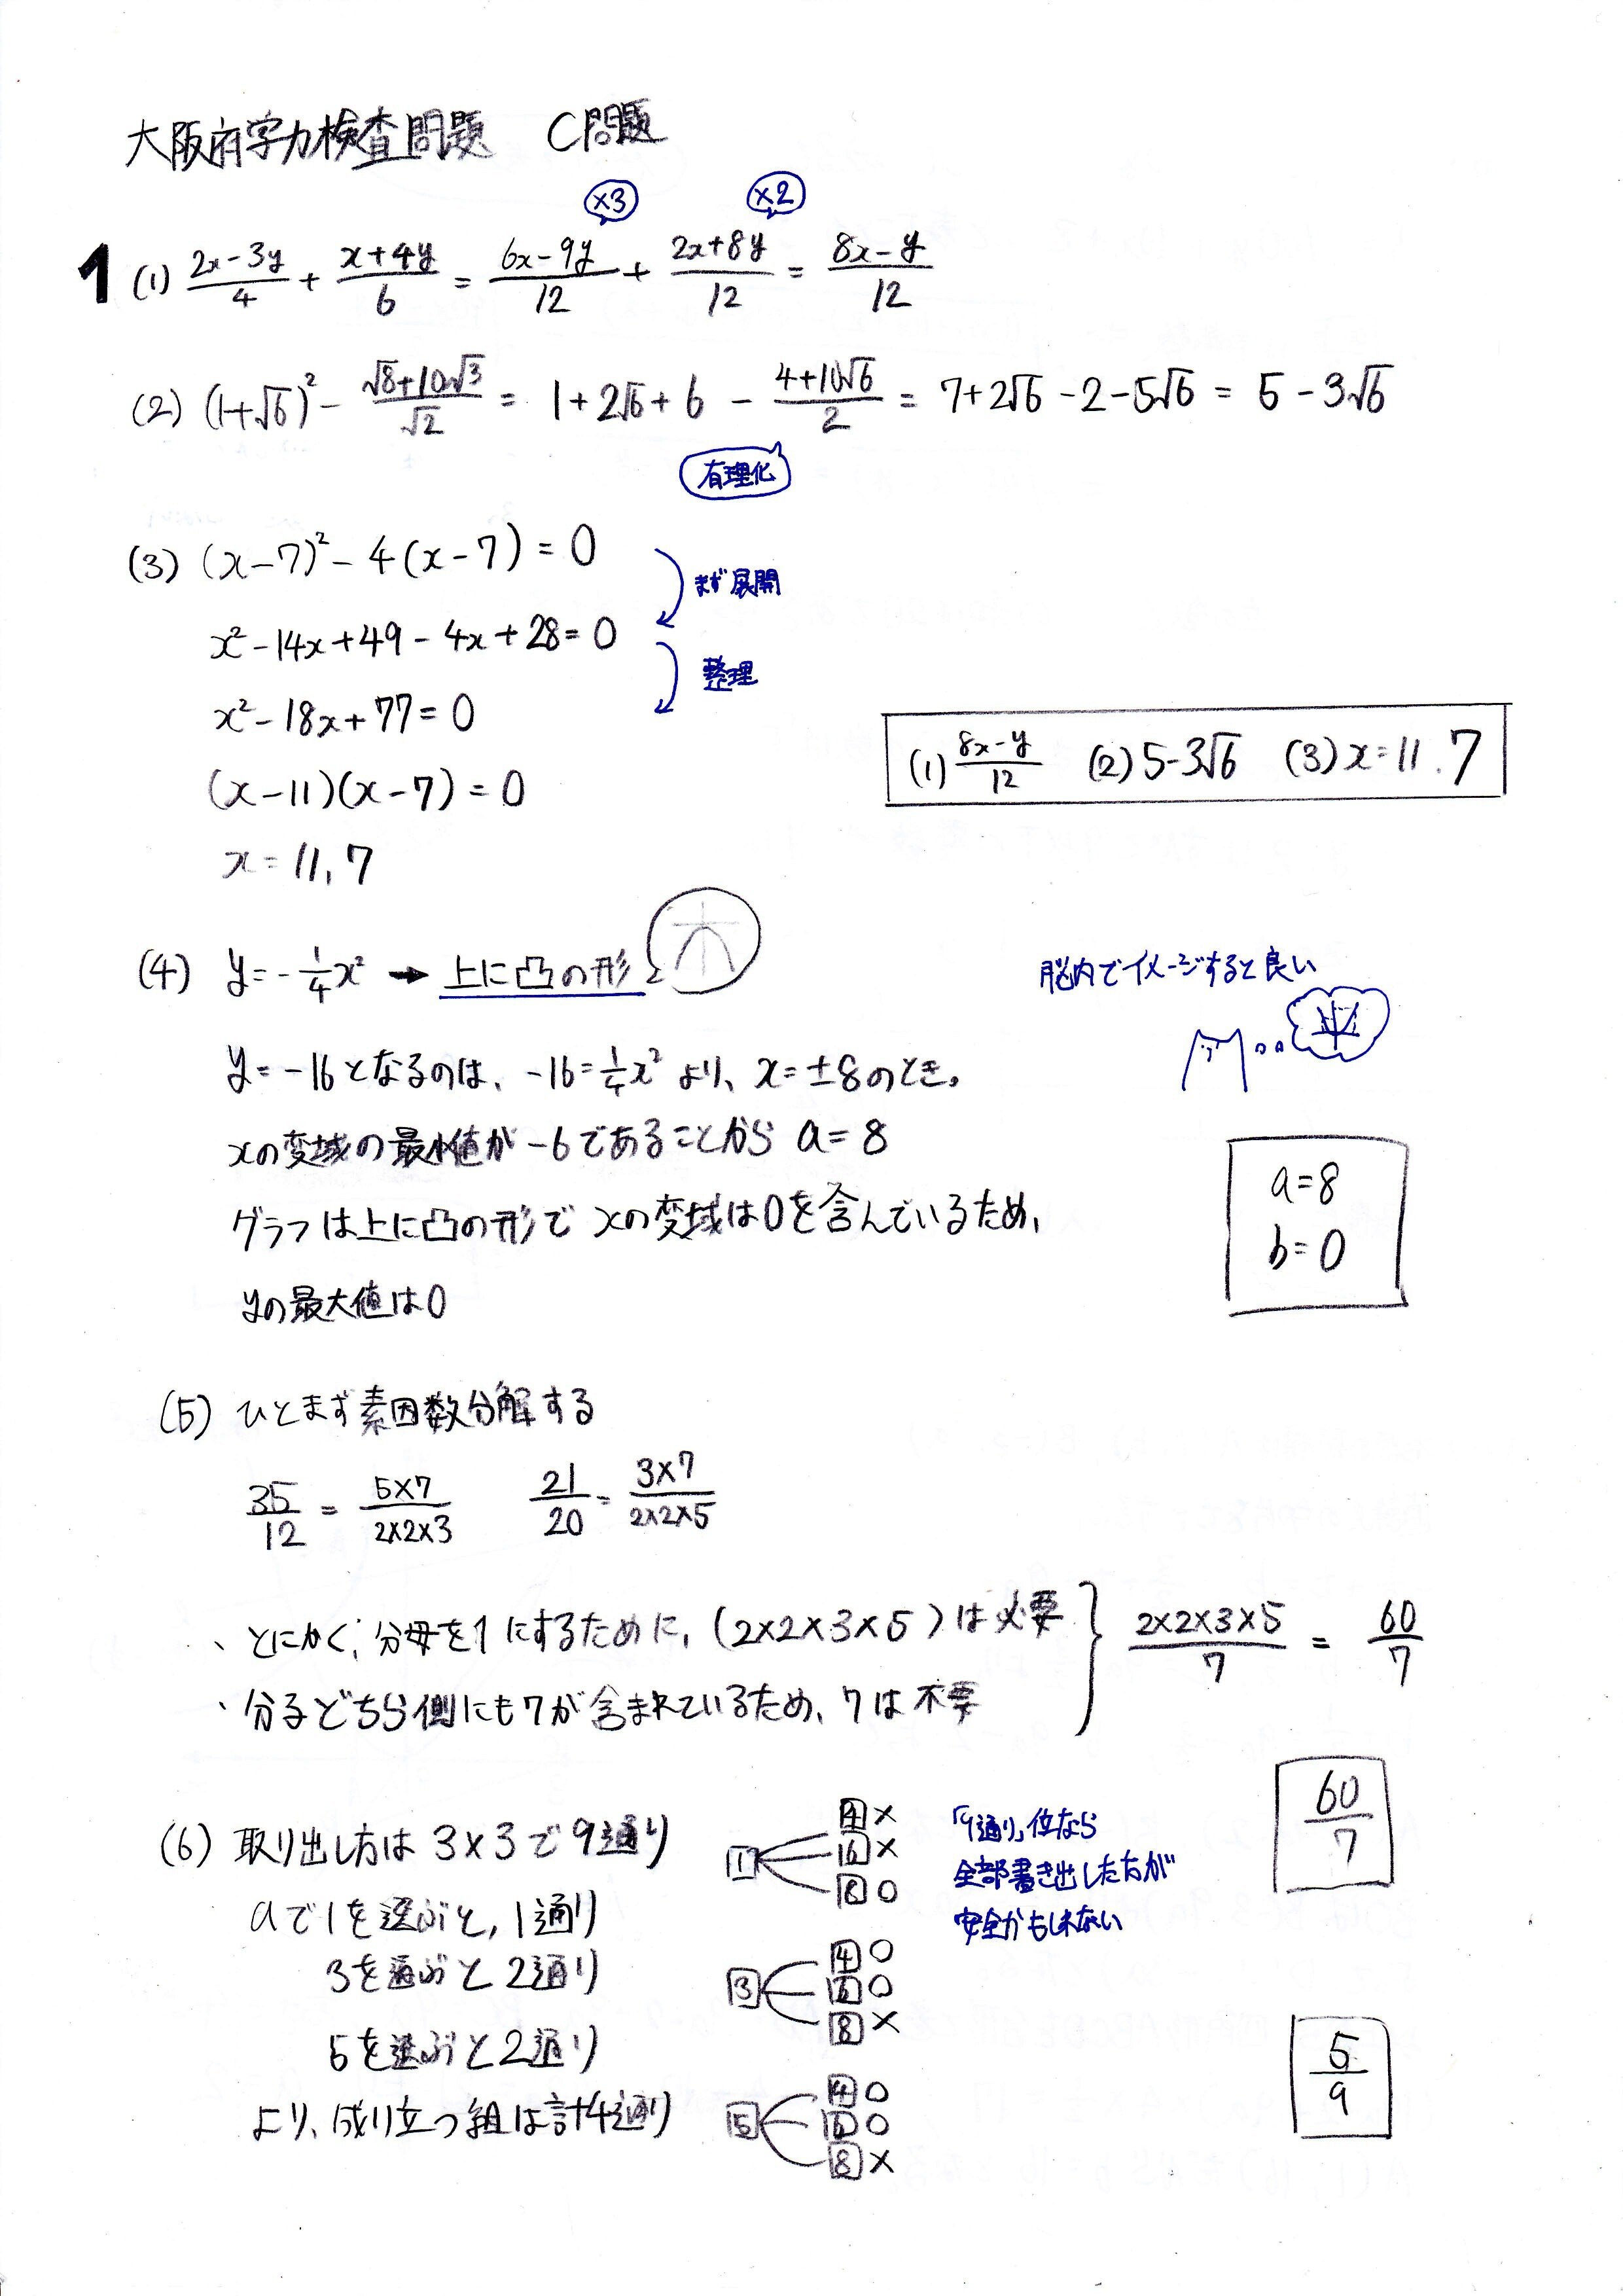 大阪府学力検査問題 C問題
×3 ×2
1 (1) (2x-3y)/4 + (x+4y)/6 = (6x-9y)/12 + (2x+8y)/12 = (8x-y)/12
(2) (1+√6)² - (√8+10√3)/√2 = 1+2√6+6 - (4+10√6)/2 = 7+2√6-2-5√6 = 5-3√6
有理化
(3) (x-7)²-4(x-7)=0
まず展開
x²-14x+49-4x+28=0
整理
x²-18x+77=0
(1) (8x-y)/12 (2) 5-3√6 (3) x=11.7
(x-11)(x-7)=0
x=11,7
(4) y=-1/4x² → 上に凸の形
脳内でイメージすると良い
y=-16となるのは、-16=1/4x²より、x=±8のとき。
xの変域の最小値が-6であることから a=8
a=8
グラフは上に凸の形でxの変域は0を含んでいるため、
b=0
yの最大値は0
(5) ひとまず素因数分解する
35/12 = (5×7)/(2×2×3) 21/20 = (3×7)/(2×2×5)
、とにかく、分母を1にするために、(2×2×3×5)は必要
、分子どちら側にも7が含まれているため、7は不要
(2×2×3×5)/7 = 60/7
60/7
(6) 取り出し方は3×3で9通り
aで1を選ぶと,1通り
3を選ぶと2通り
5を選ぶと2通り
より、成り立つ組は計4通り
1 4× 6× 8○
3 4○ 6○ 8×
5 4○ 6○ 8×
「9通り」位なら
全部書き出した方が
安全かもしれない
5/9